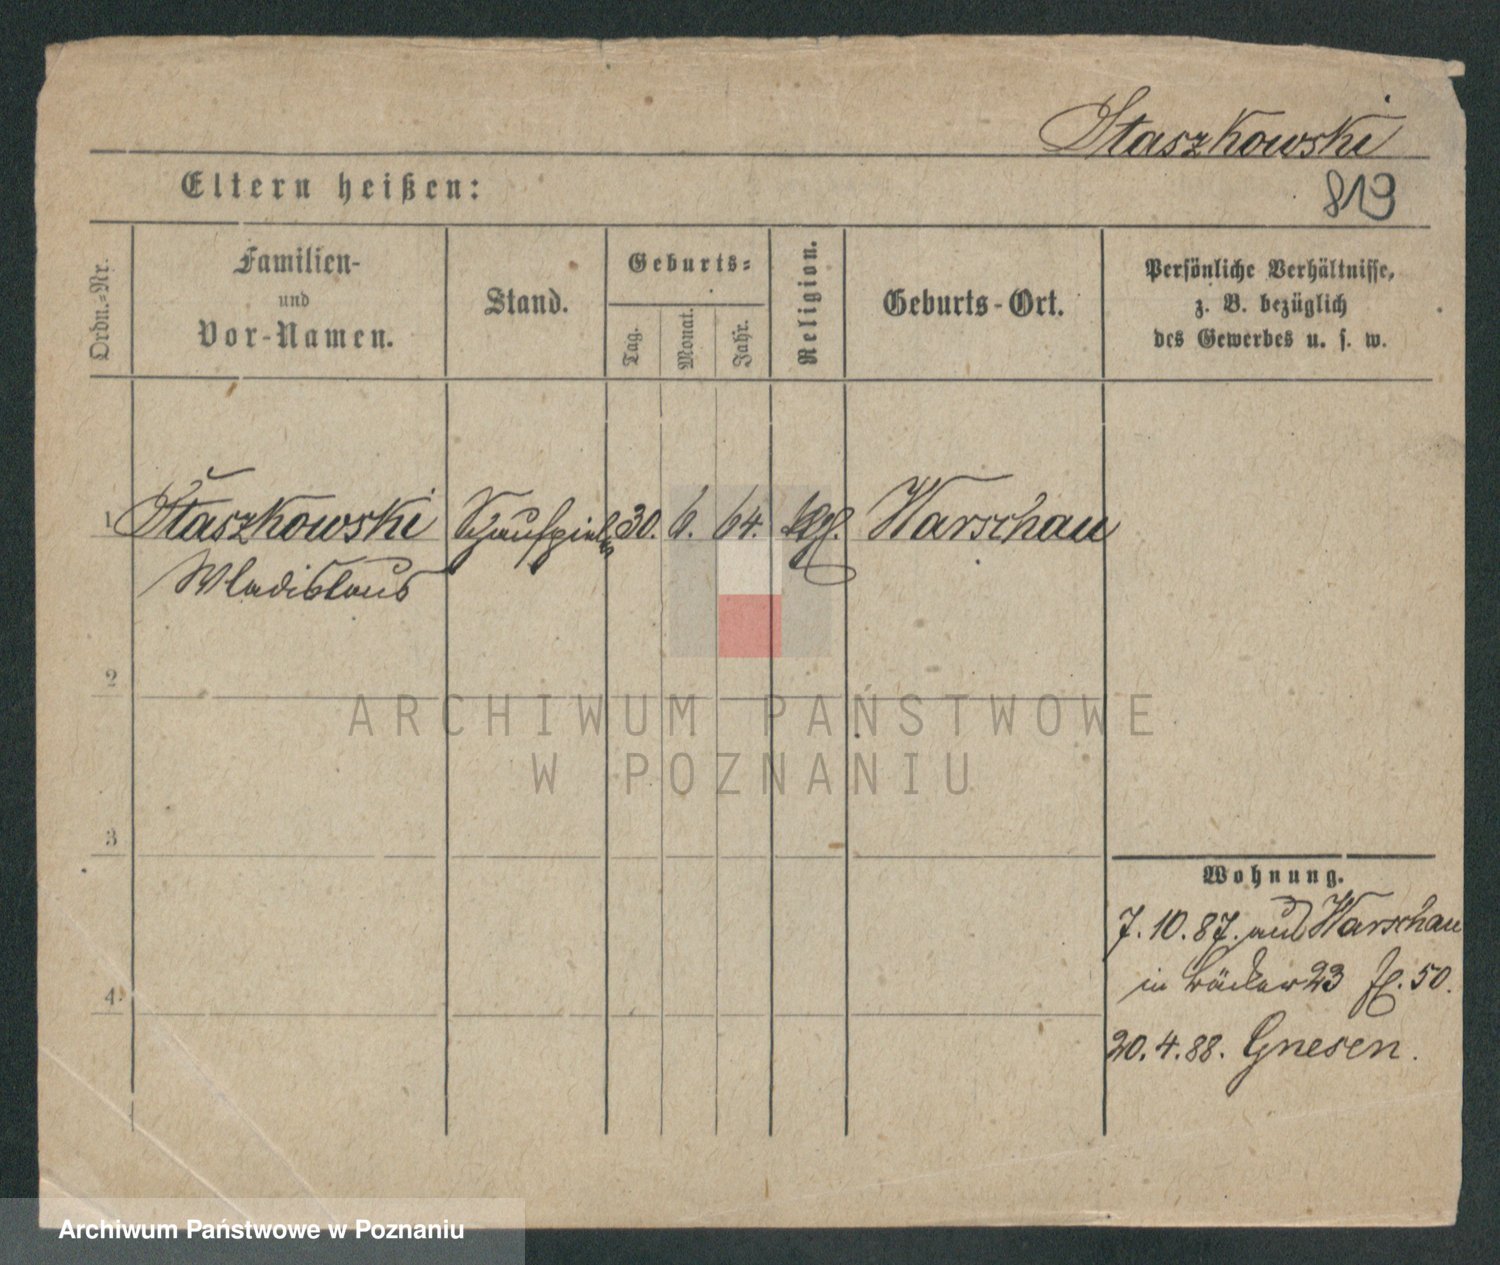 Staszkowski
819
Eltern heißen:
Ordn.-Nr.
Familien-
und
Vor-Namen.
Stand.
Geburts-
Tag.
Monat.
Jahr.
Religion.
Geburts-Ort.
Persönliche Verhältnisse,
z. B. bezüglich
des Gewerbes u. s. w.
1 Staszkowski Schauspieler 30. 6. 64. Warschau
Wladislaus
2
3
4
ARCHIWUM PAŃSTWOWE
W POZNANIU
Wohnung.
7.10.87. aus Warschau
in 23 50.
20.4.88. Gnesen.
Archiwum Państwowe w Poznaniu